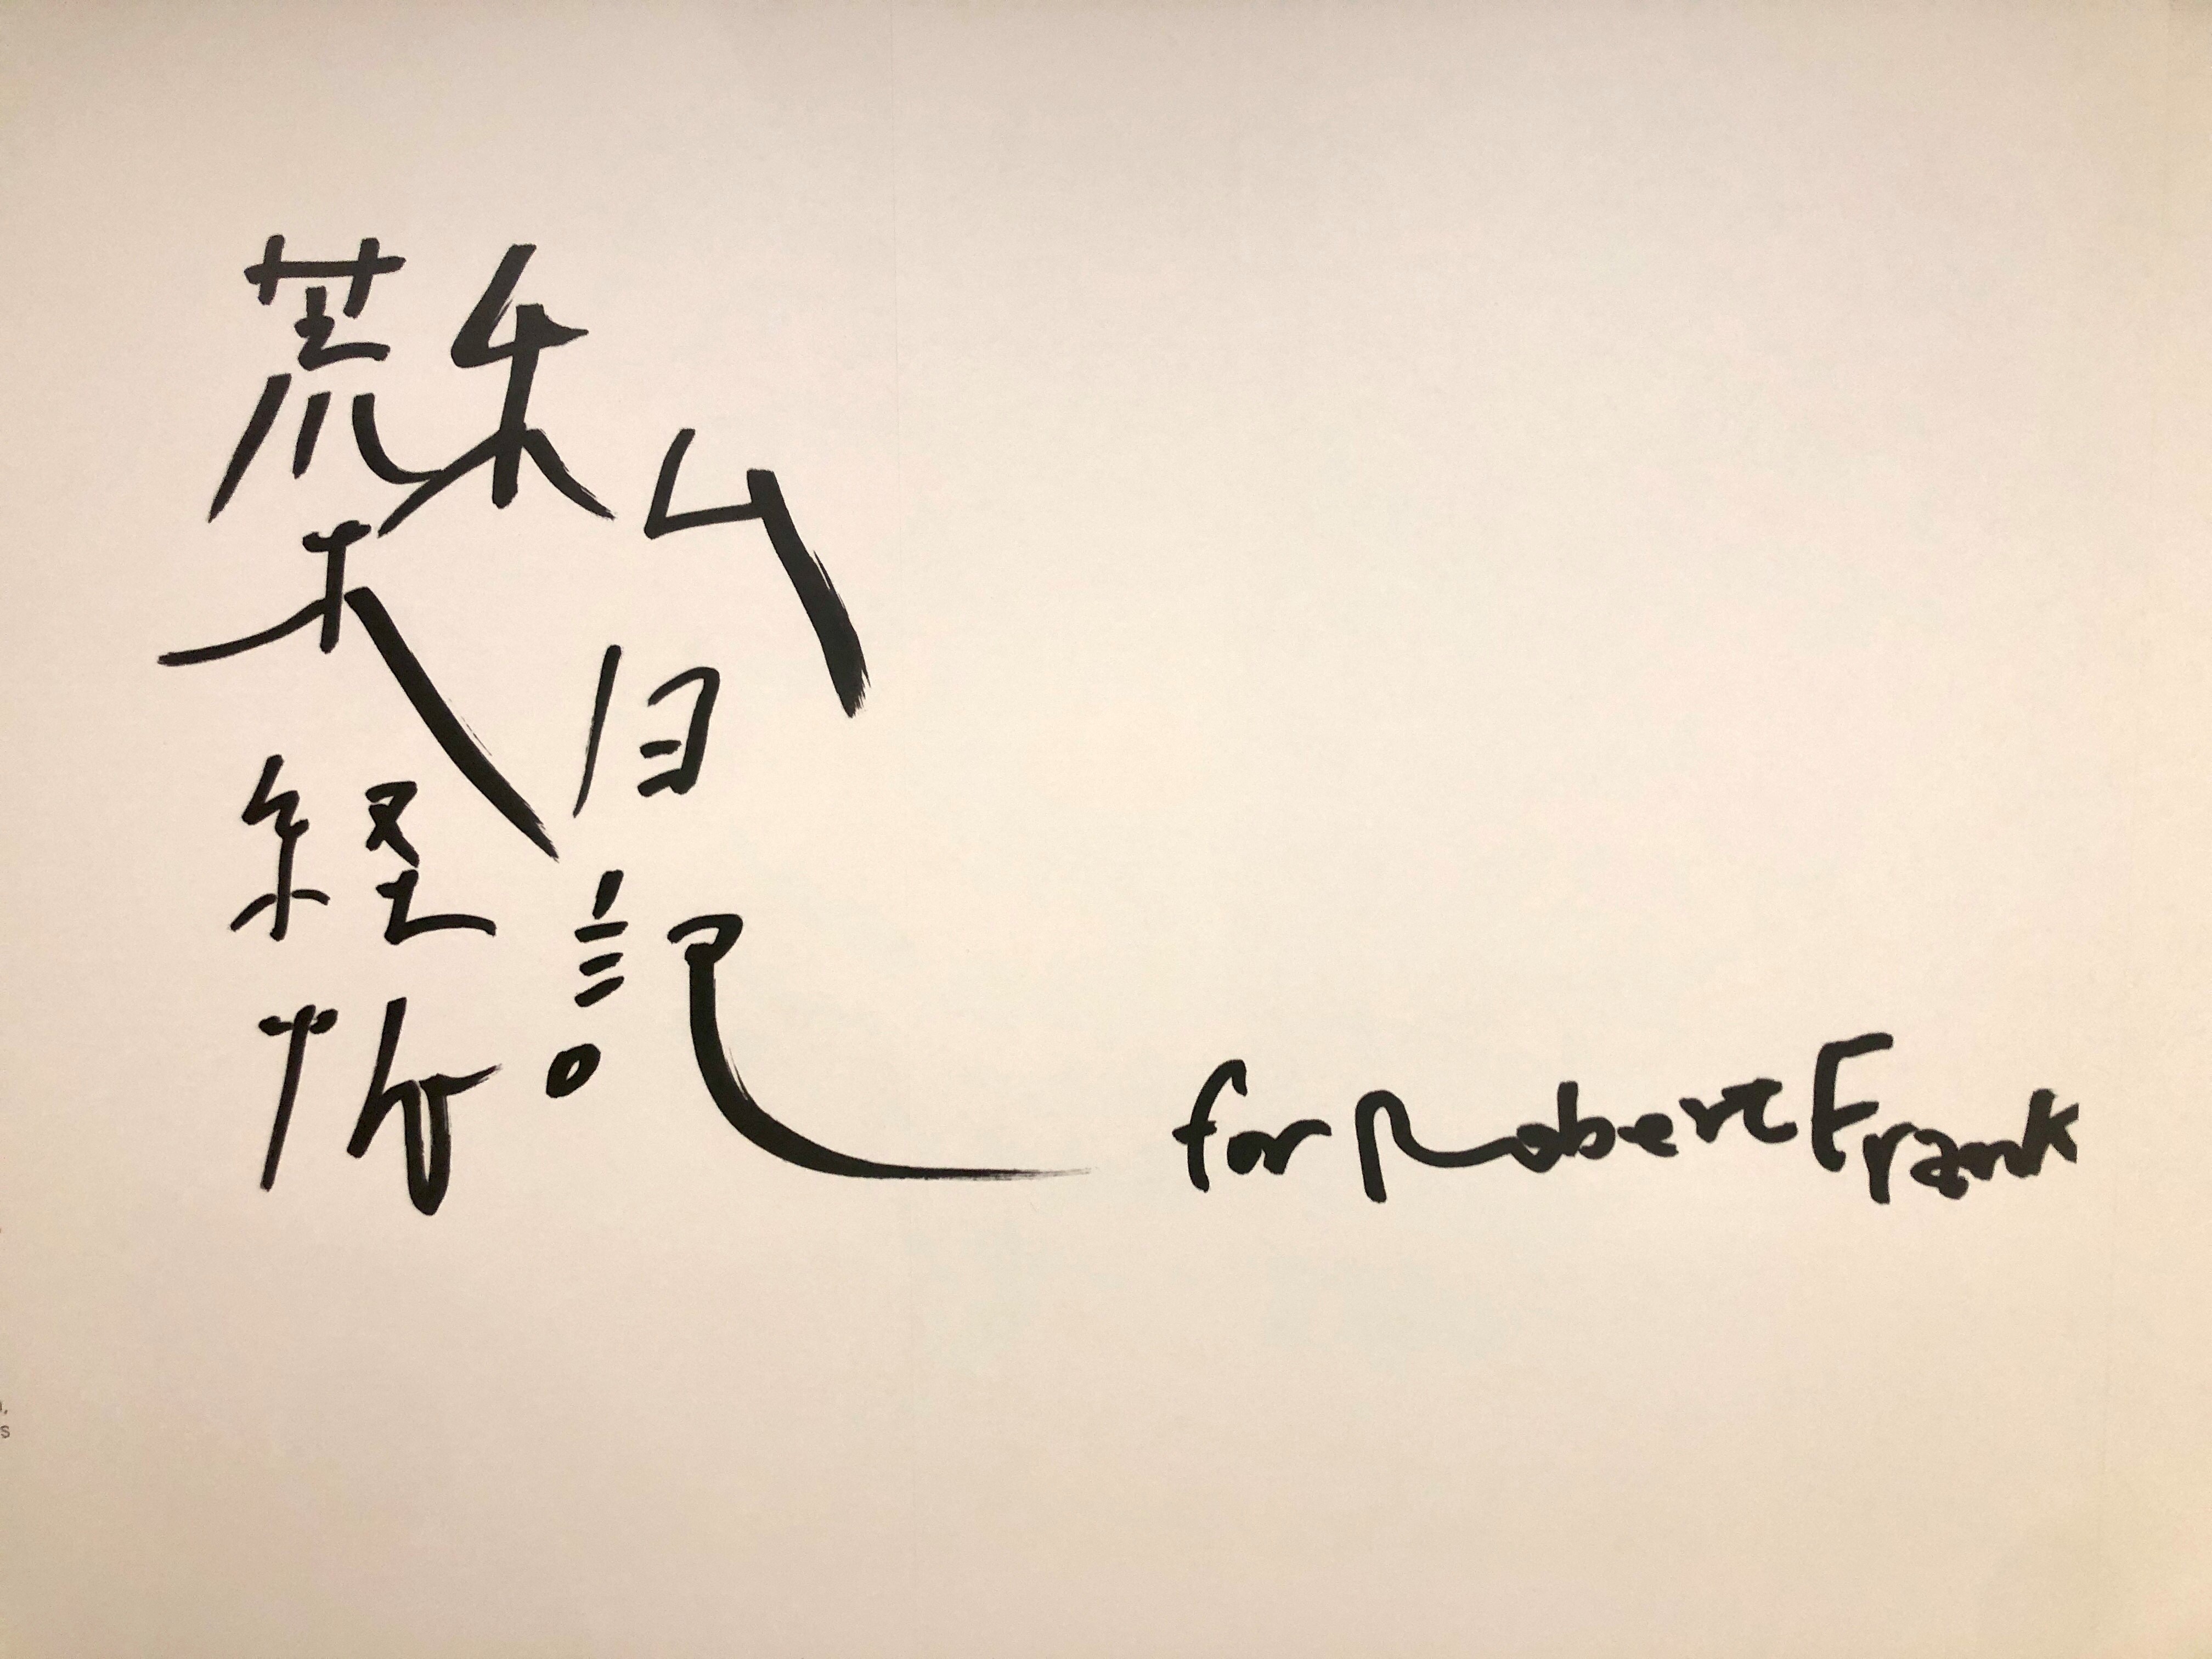 私日記
荒木経惟
for Robert Frank